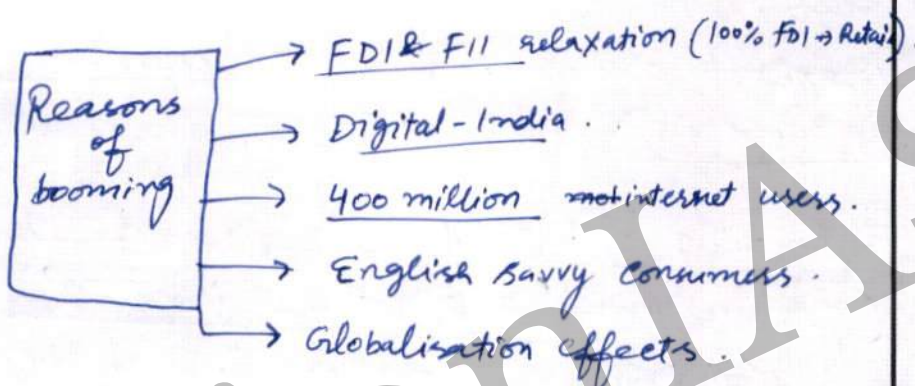 Reasons
of
booming
FDI & FII relaxation (100% FDI → Retail).
Digital-India.
400 million internet users.
English savvy consumers.
Globalisation effects.